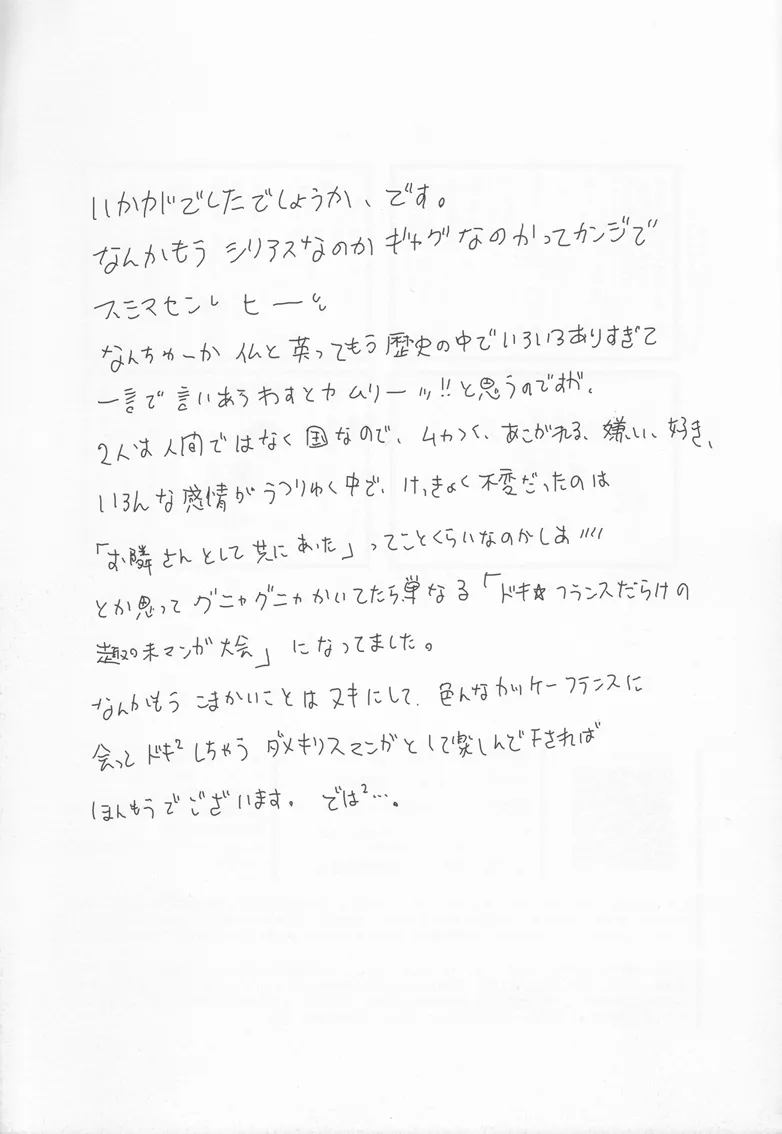 いかがでしたでしょうか、です。
なんかもう シリアスなのか ギャグなのかってカンジで
スミマセンレ ヒーッ
なんちゅーか 仏と英ってもう歴史の中でいろいろありすぎて
一言で言いあらわすとか ムリーッ!!と思うのですが、
2人は人間ではなく国なので、ムカつく、あこがれる、嫌い、好き、
いろんな感情がうつりゆく中で、けっきょく不変だったのは
「お隣さんとして共にあった」ってことくらいなのかしあ////
とか思って グニャグニャかいてたら単なる「ドキ☆フランスだらけの
趣味マンガ大会」になってました。
なんかもう こまかいことはヌキにして、色んなカッケーフランスに
会って ドキ²しちゃう ダメギリスマンガとして楽しんで下されば
ほんもうでございます。 では²…。